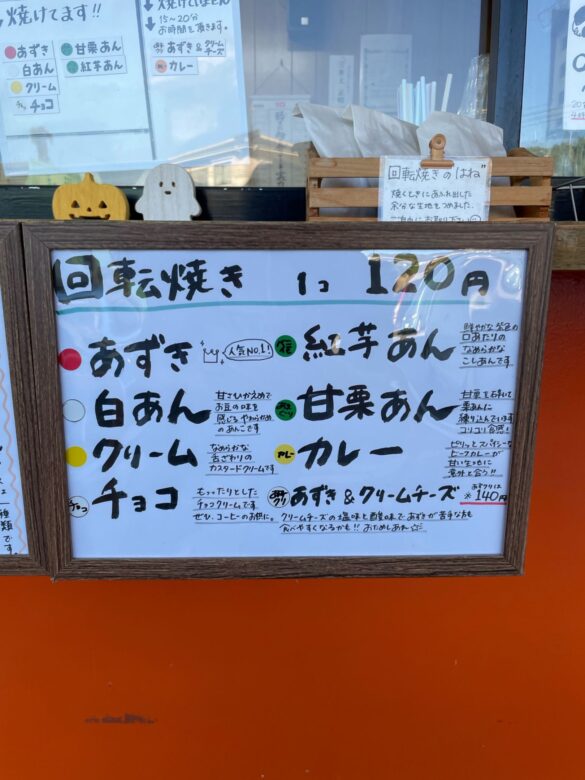 焼けてます!!
あずき
甘栗あん
白あん
紅芋あん
クリーム
チョコ
15〜20分
お時間を頂きます。
あずき&クリーム
チーズ
カレー
回転焼きのはね
焼くときにあふれ出した
余分な生地をつめました。
回転焼き 1コ 120円
あずき
人気NO.1!
紅芋あん
鮮やかな紫色の
口あたりの
なめらかな
こしあんです
白あん
甘さひかえめで
お豆の味を
感じる やわらかめ
のあんこです
甘栗あん
甘栗を
栗あんに
練り込んでいます
コリコリ食感!
クリーム
なめらかな
舌ざわりの
カスタードクリームです
カレー
ピリッとスパイシーな
ビーフカレーが
甘い生地に
意外と合う!!
チョコ
もったりとした
チョコクリームです
ぜひ、コーヒーのお供に。
あずき&クリームチーズ
※140円
クリームチーズの塩味と酸味で あずきが苦手な方も
食べやすくなるかも!! おためしあれ☆